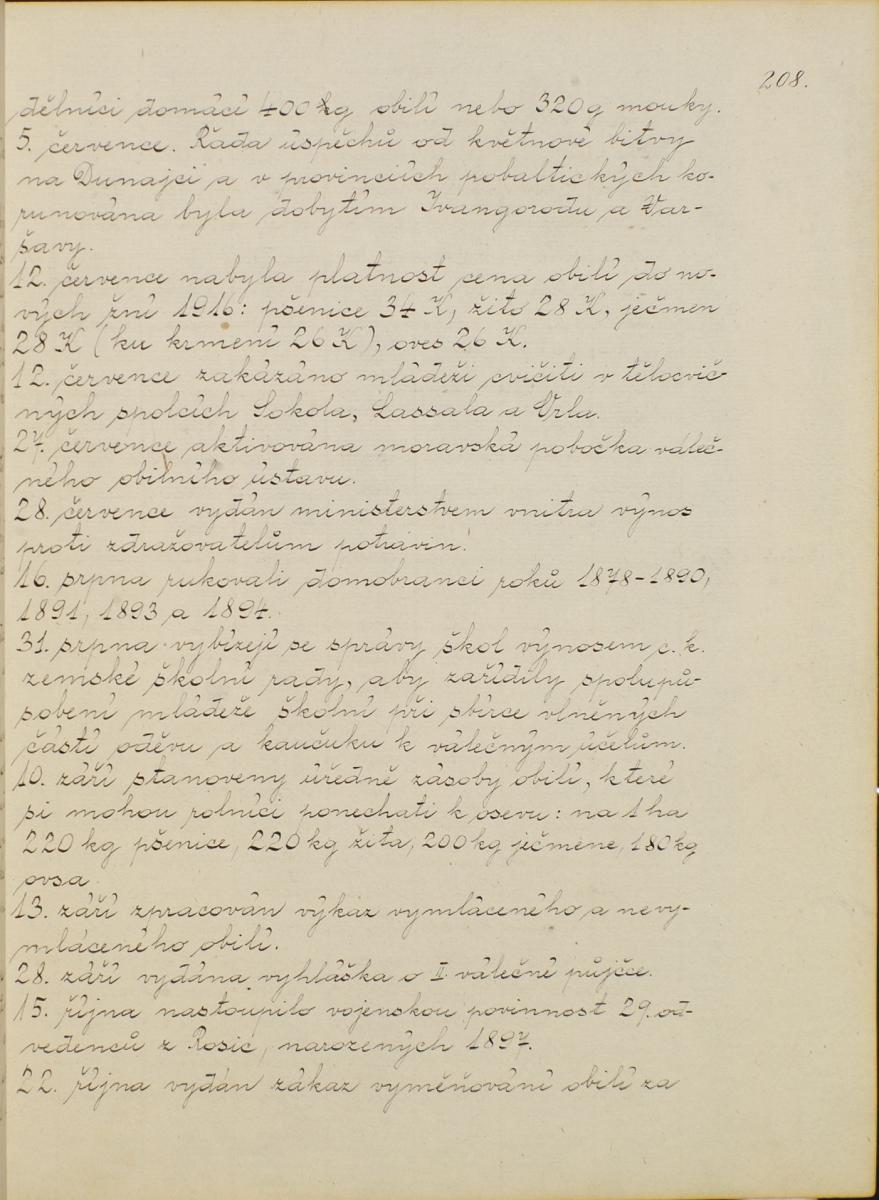 208.
dělníci domácí 400 kg obilí nebo 320 g mouky.
5. července. Řada úspěchů od květnové bitvy
na Dunajci a v provinciích pobaltických ko-
runována byla dobytím Ivangorodu a Var-
šavy.
12. července nabyla platnost cena obilí do no-
vých žní 1916: pšenice 34 K, žito 28 K, ječmen
28 K (ku krmení 26 K), oves 26 K.
12. července zakázáno mládeži cvičiti v tělocvič-
ných spolcích Sokola, Lassala a Orla.
27. července aktivována moravská pobočka váleč-
ného obilního ústavu.
28. července vydán ministerstvem vnitra výnos
proti zdražovatelům potravin.
16. srpna rukovali domobranci roků 1878-1890,
1891, 1893 a 1894.
31. srpna vybízejí se správy škol výnosem c. k.
zemské školní rady, aby zařídily spolupů-
sobení mládeže školní při sbírce vlněných
částí oděvu a kaučuku k válečným účelům.
10. září stanoveny úředně zásoby obilí, které
si mohou rolníci ponechati k osevu: na 1 ha
220 kg pšenice, 220 kg žita, 200 kg ječmene, 180 kg
ovsa.
13. září zpracován výkaz vymláceného a nevy-
mláceného obilí.
28. září vydána vyhláška o II. válečné půjčce.
15. října nastoupilo vojenskou povinnost 29. od-
vedenců z Rosic, narozených 1897.
22. října vydán zákaz vyměňování obilí za